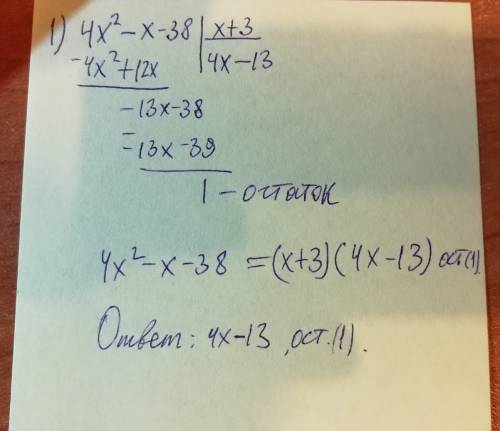 1) 4x² - x - 38 | x+3
- 4x² + 12x | 4x - 13
- 13x - 38
- - 13x - 39
1 - остаток
4x² - x - 38 = (x+3)(4x - 13) ост(1).
Ответ: 4x - 13, ост.(1).